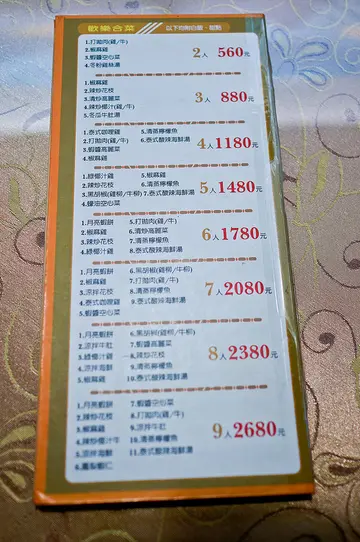 歡樂合菜 以下均附白飯、甜點
1.打拋肉(雞/牛)
2.椒麻雞
3.蝦醬空心菜
4.冬粉雞絲湯
2人 560元
1.椒麻雞
2.辣炒花枝
3.清炒高麗菜
4.辣炒椰汁(雞/牛)
5.冬瓜牛肚湯
3人 880元
1.泰式咖哩雞 5.清蒸檸檬魚
2.打拋肉(雞/牛) 6.泰式酸辣海鮮湯
3.蝦醬高麗菜
4.椒麻雞
4人 1180元
1.綠椰汁雞 5.椒麻雞
2.辣炒花枝 6.清蒸檸檬魚
3.黑胡椒(雞柳/牛柳) 7.泰式酸辣海鮮湯
4.蠔油空心菜
5人 1480元
1.月亮蝦餅 5.打拋肉(雞/牛)
2.椒麻雞 6.清炒高麗菜
3.辣炒花枝 7.清蒸檸檬魚
4.綠椰汁雞 8.泰式酸辣海鮮湯
6人 1780元
1.月亮蝦餅 6.黑胡椒(雞柳/牛柳)
2.椒麻雞 7.打拋肉(雞/牛)
3.涼拌花枝 8.清蒸檸檬魚
4.泰式咖哩雞 9.泰式酸辣海鮮湯
5.蝦醬空心菜
7人 2080元
1.月亮蝦餅 6.黑胡椒(雞柳/牛柳)
2.涼拌牛肚 7.蝦醬高麗菜
3.綠椰汁雞 8.辣炒花枝
4.涼拌海鮮 9.清蒸檸檬魚
5.椒麻雞 10.泰式酸辣海鮮湯
8人 2380元
1.月亮蝦餅 7.蝦醬空心菜
2.辣炒花枝 8.打拋肉(雞/牛)
3.椒麻雞 9.涼拌牛肚
4.辣炒椰汁牛 10.清蒸檸檬魚
5.涼拌海鮮 11.泰式酸辣海鮮湯
6.鳳梨蝦仁
9人 2680元